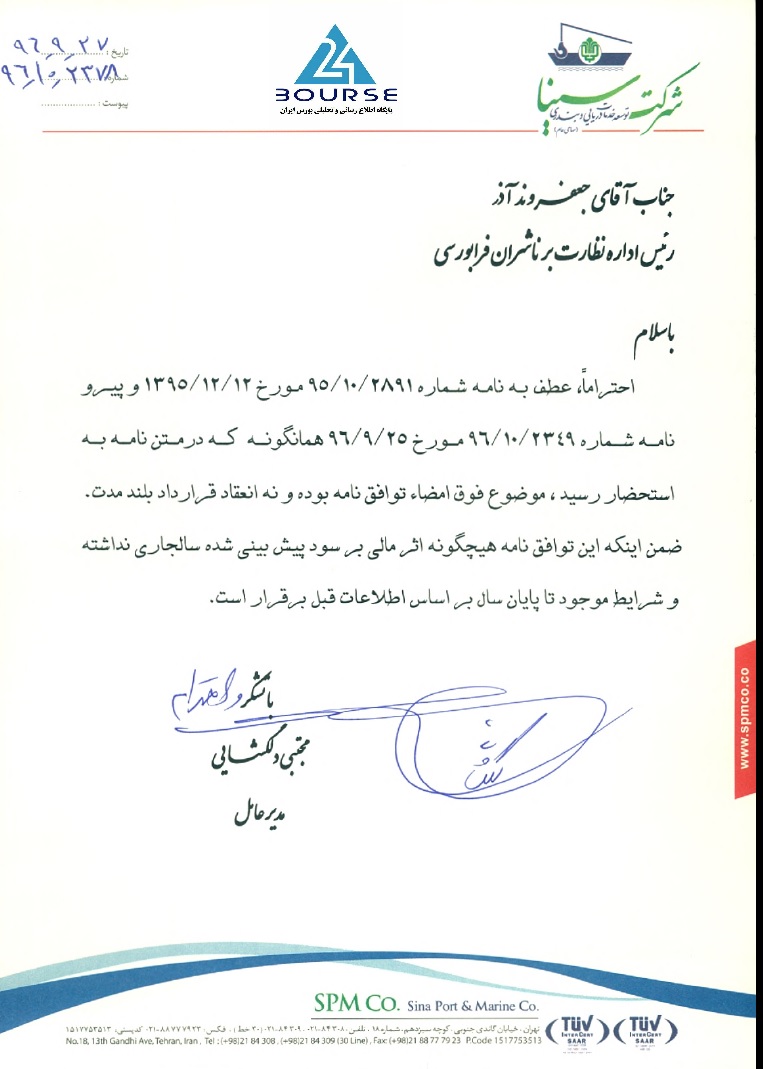 تاریخ : ۹۶,۹,۲۷
شماره : ۹۶,۱۰,۲۳۷۸
پیوست : ....................
24
BOURSE
پایگاه اطلاع رسانی و تحلیلی بورس ایران
شرکت سینا
توسعه خدمات دریایی و بندری
(سهامی عام)
جناب آقای جعفروند آذر
رئیس اداره نظارت بر ناشران فرابورسی
باسلام
احتراماً، عطف به نامه شماره ۹۵/۱۰/۲۸۹۱ مورخ ۱۳۹۵/۱۲/۱۲ و پیرو
نامه شماره ۹۶/۱۰/۲۳۴۹ مورخ ۹۶/۹/۲۵ همانگونه که در متن نامه به
استحضار رسید ، موضوع فوق امضاء توافق نامه بوده و نه انعقاد قرارداد بلند مدت.
ضمن اینکه این توافق نامه هیچگونه اثر مالی بر سود پیش بینی شده سالجاری نداشته
و شرایط موجود تا پایان سال بر اساس اطلاعات قبل برقرار است.
باتشکر و احترام
مجتبی دلگشایی
مدیرعامل
www.spmco.co
SPM Co. Sina Port & Marine Co.
تهران، خیابان گاندی جنوبی، کوچه سیزدهم، شماره ۱۸ ، تلفن : ۸۴۳۰۸-۰۲۱، ۸۴۳۰۹-۰۲۱ (۳۰ خط) ، فکس: ۸۸۷۷۷۹۲۳-۰۲۱ کدپستی: ۱۵۱۷۷۵۳۵۱۳
No.18, 13th Gandhi Ave, Tehran, Iran , Tel : (+98)21 84 308 , (+98)21 84 309 (30 Line) , Fax: (+98)21 88 77 79 23 P.Code 1517753513
TÜV
INTERCERT
SAAR
TÜV
INTERCERT
SAAR